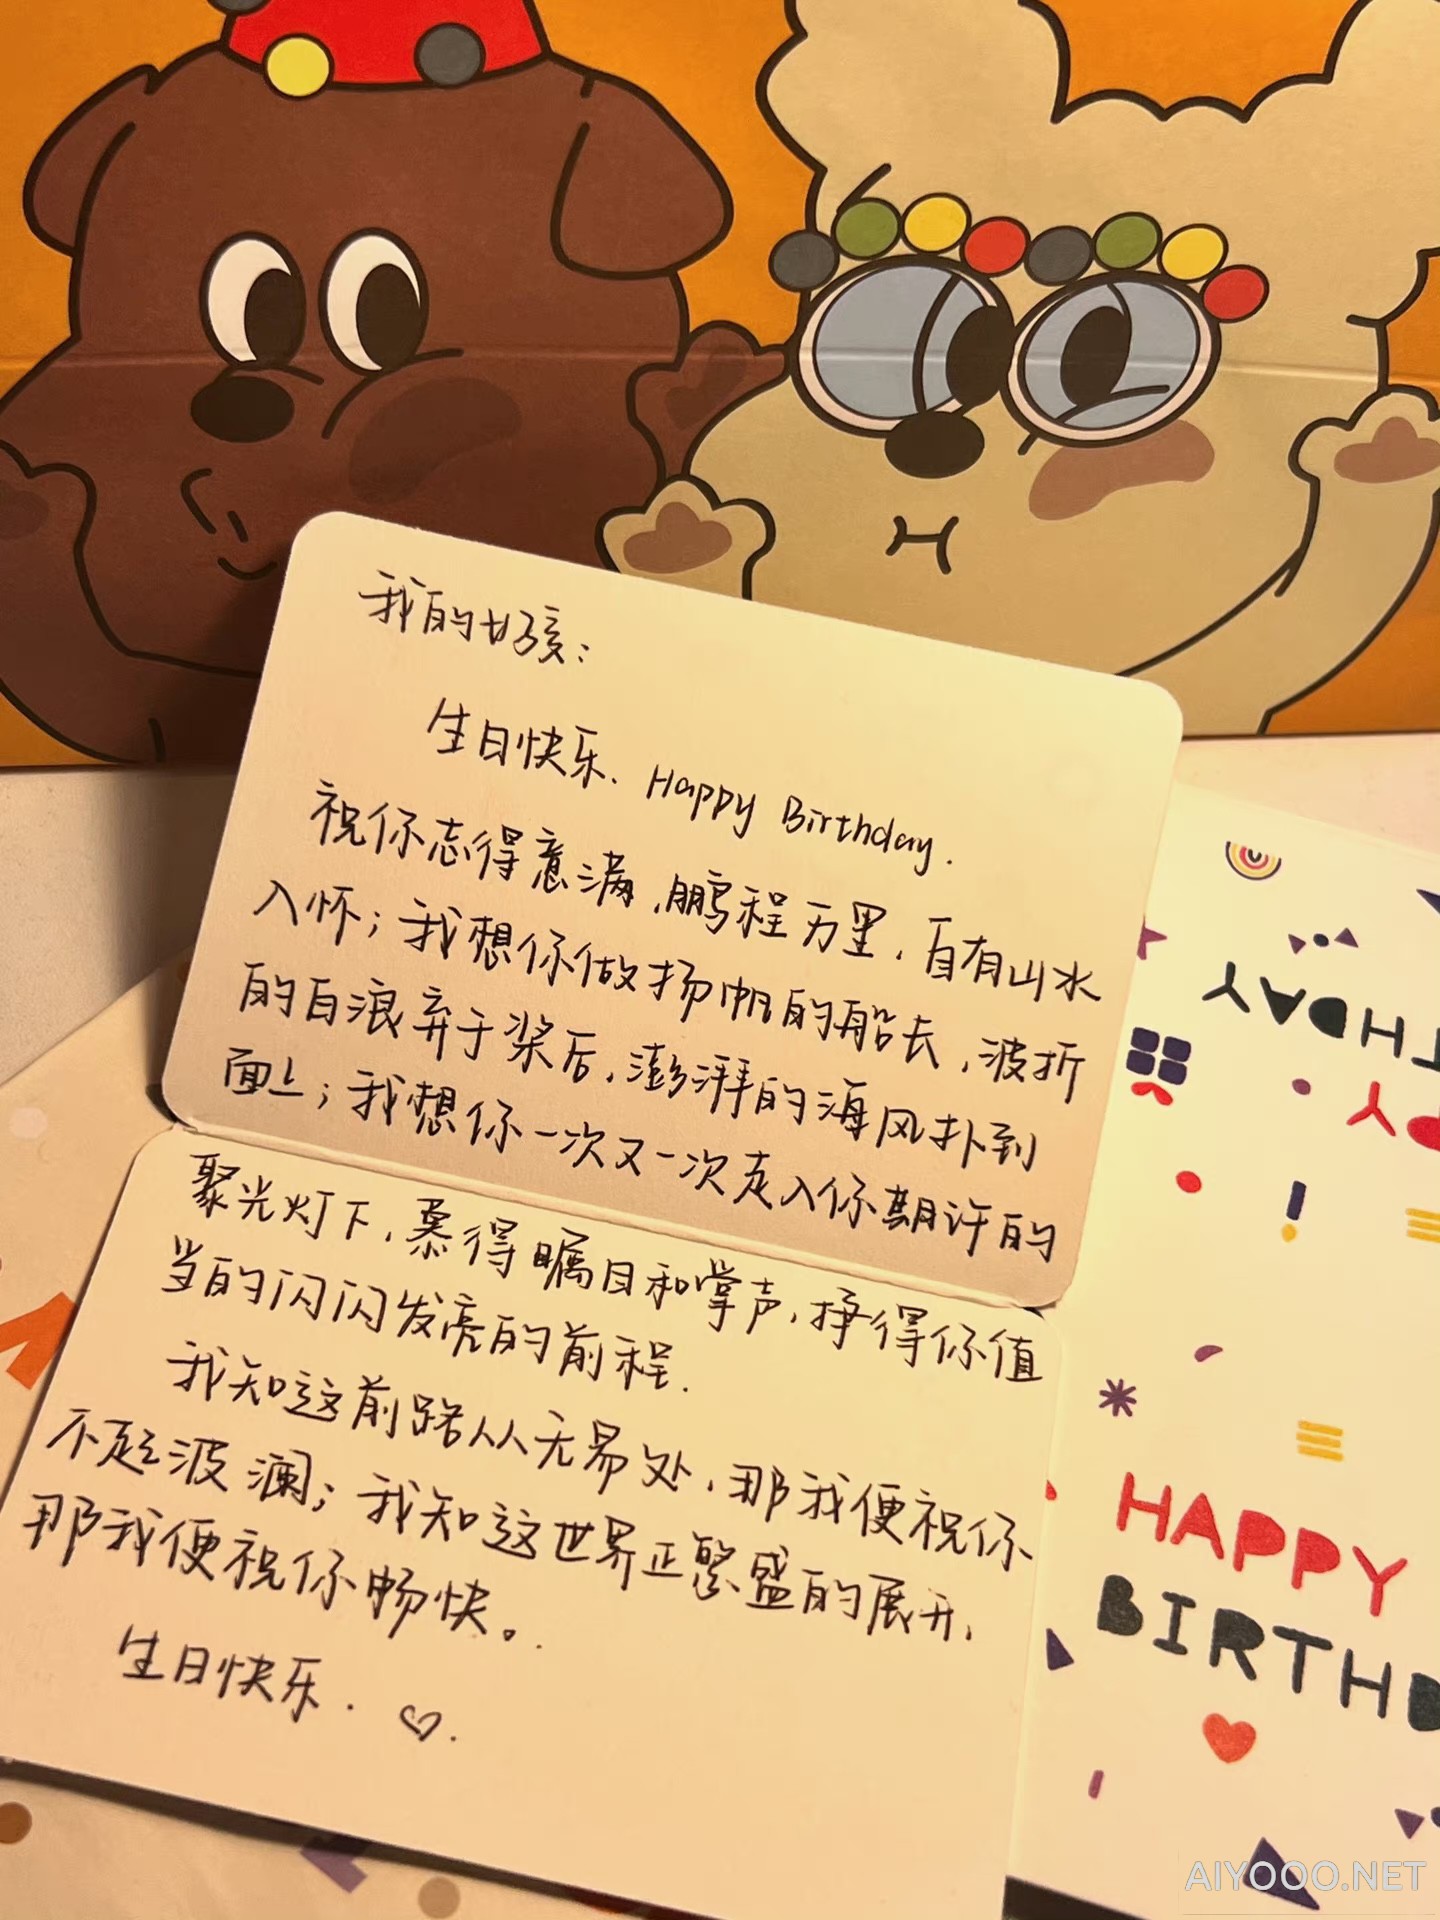 我的好孩：
生日快乐. Happy Birthday.
祝你志得意满，鹏程万里，自有山水
入怀；我想你做扬帆的船长，波折
的白浪弃于桨后，澎湃的海风扑到
面上；我想你一次又一次走入你期许的
聚光灯下，赢得瞩目和掌声，挣得你值
当的闪闪发亮的前程.
我知这前路从无易处，那我便祝你
不起波澜；我知这世界正繁盛的展开，
那我便祝你畅快。.
生日快乐. ♡.
THDAY
PY
HAPPY
BIRTHD
AIYOOO.NET